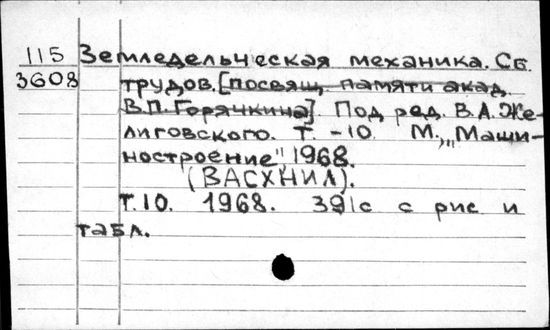 115 Земледельческая механика. Сб.
3608 трудов. [посвящ. памяти акад.
В.П. Горячкина]. Под ред. В.А. Же-
лиговского. Т. -10. М., "Маши-
ностроение", 1968.
(ВАСХНИЛ).
Т.10. 1968. 391с с рис и
табл.